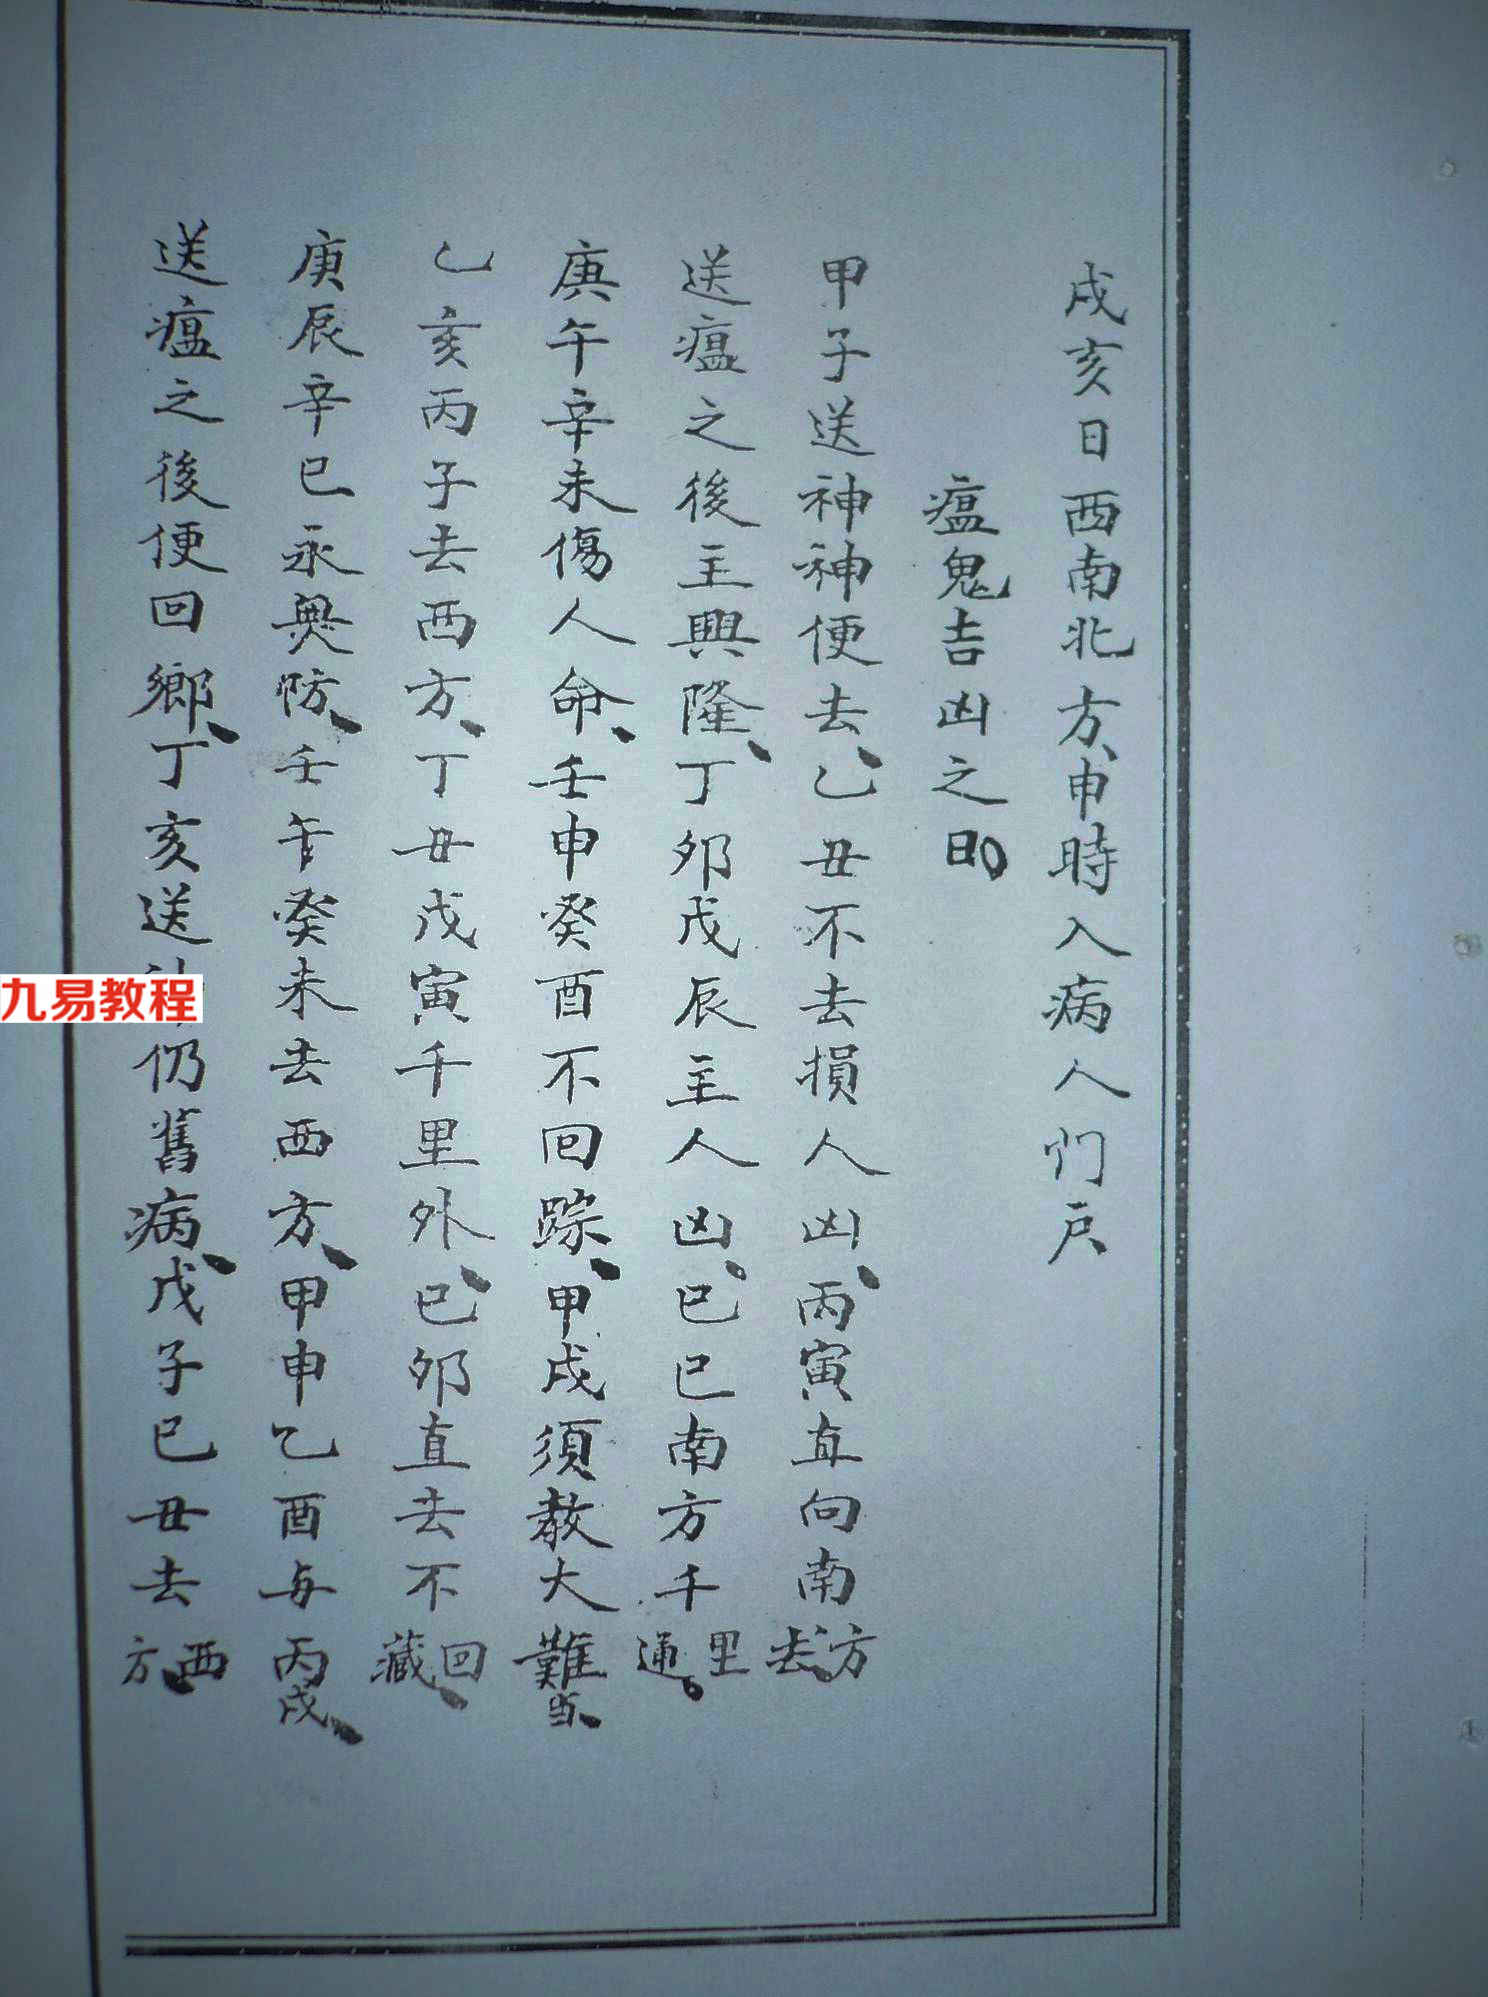 戌亥日西南北方、申時入病人们户
瘟鬼吉凶之日。
甲子送神神便去、乙丑不去損人凶、丙寅直向南方去、
送瘟之後主興隆、丁卯戊辰主人凶、己巳南方千里通。
庚午辛未傷人命、壬申癸酉不回踪、甲戌須教大難当、
乙亥丙子去西方、丁丑戊寅千里外、己卯直去不回藏、
庚辰辛巳永無防、壬午癸未去西方、甲申乙酉与丙戌、
送瘟之後便回鄉、丁亥送仍舊病、戊子己丑去西方、
九易教程